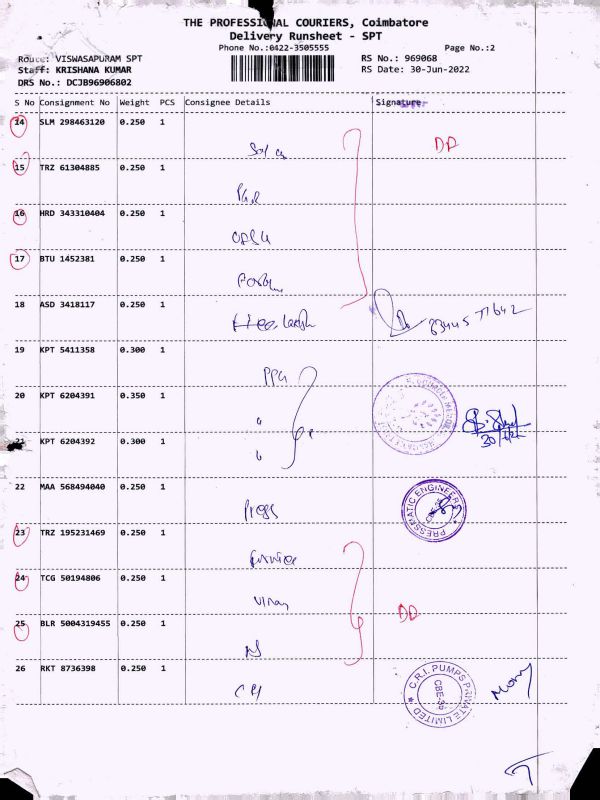 THE PROFESSIONAL COURIERS, Coimbatore
Delivery Runsheet - SPT
Phone No.:0422-3505555
Page No.:2
Route: VISWASAPURAM SPT
RS No.: 969068
Staff: KRISHANA KUMAR
RS Date: 30-Jun-2022
DRS No.: DCJB96906802
S No Consignment No Weight PCS Consignee Details Signature
14 SLM 298463120 0.250 1
DD
15 TRZ 61304885 0.250 1
16 HRD 343310404 0.250 1
17 BTU 1452381 0.250 1
18 ASD 3418117 0.250 1
83445 77642
19 KPT 5411358 0.300 1
PPG
20 KPT 6204391 0.350 1
"
21 KPT 6204392 0.300 1
"
22 MAA 568494040 0.250 1
Press
PRESSMATIC ENGINEERS
23 TRZ 195231469 0.250 1
24 TCG 50194806 0.250 1
Vinay
DD
25 BLR 5004319455 0.250 1
26 RKT 8736398 0.250 1
CRI
C.R.I. PUMPS PRIVATE LIMITED
CBE-35